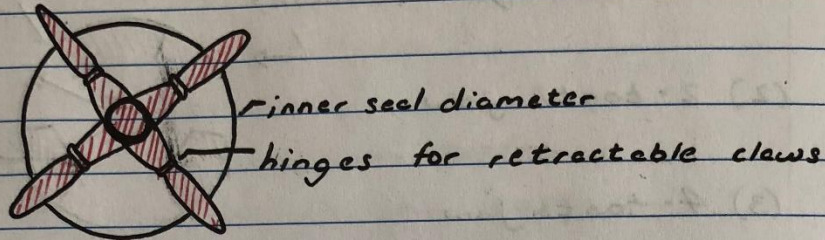 inner seal diameter
hinges for retractable claws